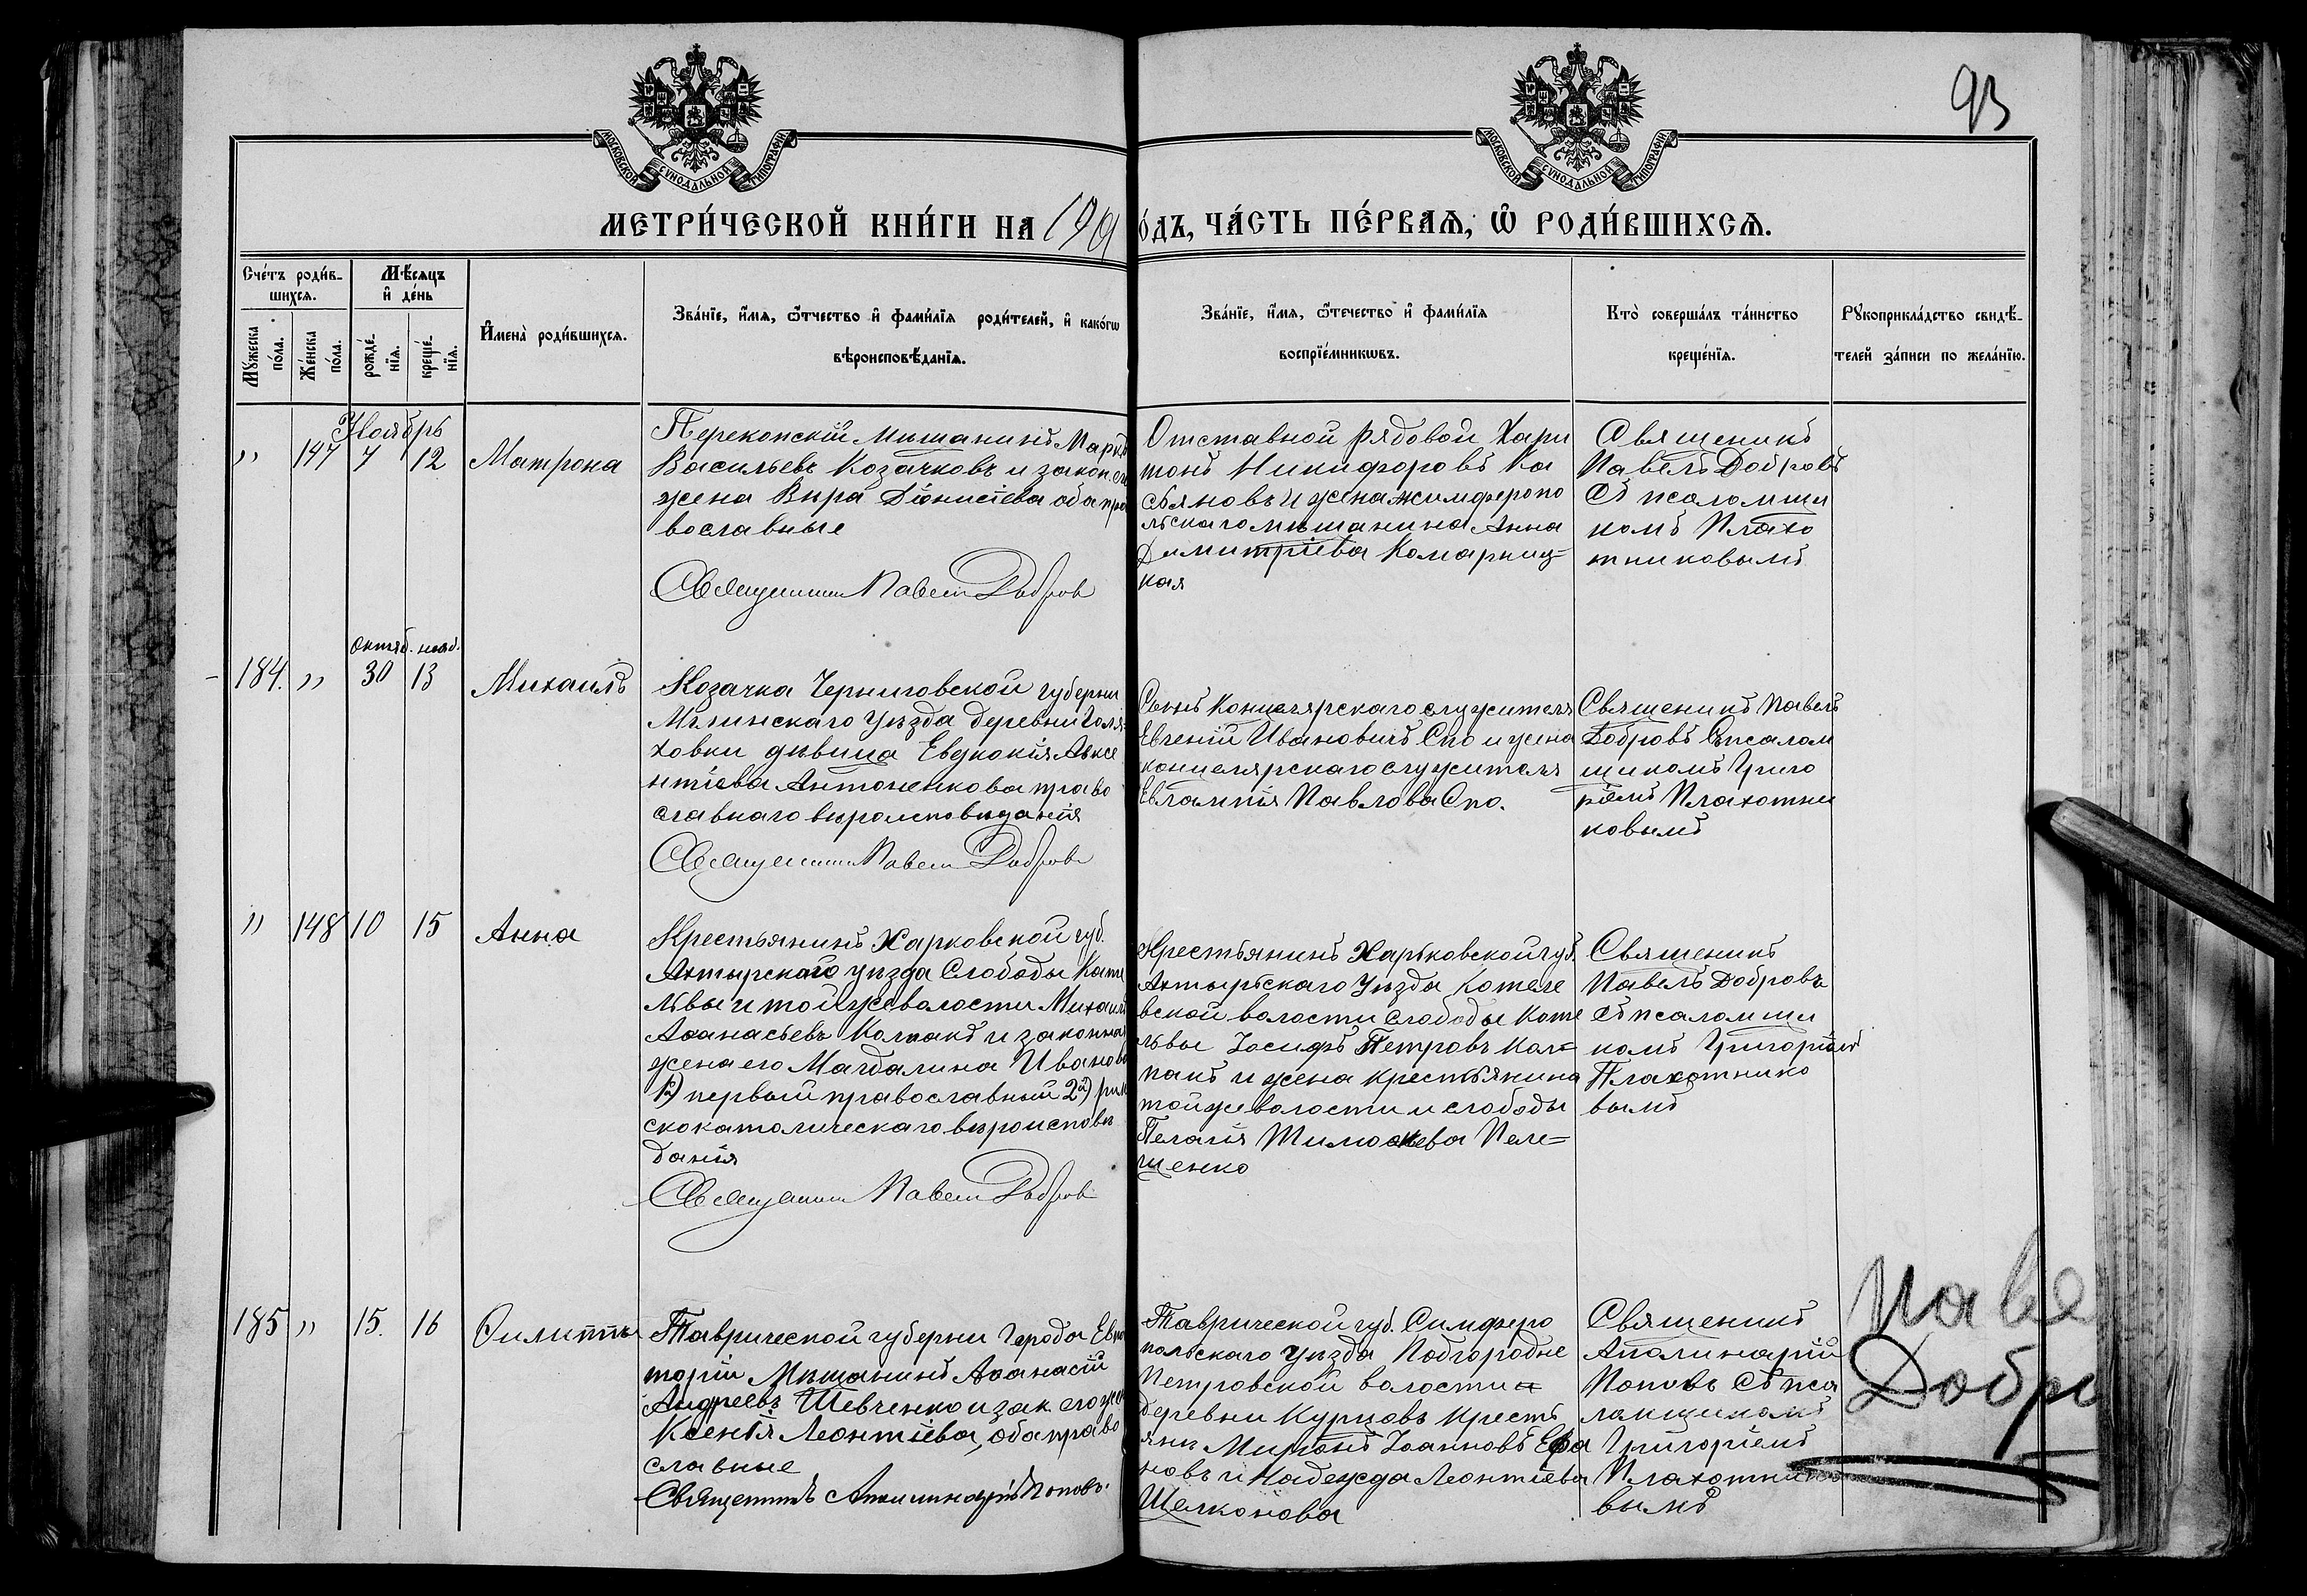 93
МОСКОВСКОЙ СѴНОДАЛЬНОЙ ТИПОГРАФИИ
МОСКОВСКОЙ СѴНОДАЛЬНОЙ ТИПОГРАФИИ
МЕТРИ́ЧЕСКОЙ КНИ́ГИ НА 190
О́ДЪ, ЧА́СТЬ ПЕ́РВАѦ, Ѡ҆ РОДИ́ВШИХСѦ.
Сче́тъ роди́в-
шихсѧ.
Мѣ́сѧцъ
и҆ де́нь
Мꙋ́жеска
по́ла.
Же́нска
по́ла.
рожде́-
нїѧ.
креще́-
нїѧ.
И҆мена̀ роди́вшихсѧ.
Зва́нїе, и҆́мѧ, ѻ҆́тчество и҆ фами́лїѧ роди́телей, и҆ како́гѡ
вѣроисповѣ́данїѧ.
Зва́нїе, и҆́мѧ, ѻ҆́течество и҆ фами́лїѧ
воспрїе́мникѡвъ.
Кто̀ соверша́лъ та́инство
креще́нїѧ.
Рꙋкоприкла́дство свидѣ́-
телей за́писи по жела́нїю.
Ноябрь
" 147 7 12 Матрона
Перекопскій мѣщанинъ Маркъ
Васильевъ Козачковъ и закон. его
жена Вѣра Діонисіева оба пра
вославные
Священникъ Павелъ Добровъ
Отставной рядовой Хари
тонъ Никифоровъ Ка
сьяновъ и жена симферопо
льскаго мѣщанина Анна
Димитріева Комарниц-
кая
Священикъ
Павелъ Добровъ
Съ псаломщи
комъ Плахо
тниковымъ
октяб. нояб.
184. " 30 13 Михаилъ
Козачка Черниговской губерни
Мглинскаго уѣзда деревни Голя
ховки дѣвица Евдокія Авксе
нтіева Антоненкова право
славнаго вѣроисповѣданія
Священникъ Павелъ Добровъ
Сынъ Канцелярскаго служителя
Евгеній Ивановичъ Спо и жена
концелярскаго служителя
Евлампія Павлова Спо.
Священикъ Павелъ
Добровъ Съ псалом
щикомъ Григо
ріемъ Плахотни
ковымъ
" 148 10 15 Анна
Крестьянинъ Харковской губ.
Ахтырскаго уѣзда Слободы Коте
львы и той же волости Михаилъ
Аѳанасьевъ Колпакъ и законная
жена его Магдалина Иванова
1й) первый православный 2й) рим
скокатолическаго вѣроисповѣ
данія
Священникъ Павелъ Добровъ
Крестьянинъ Харьковской губ.
Ахтырьскаго Уѣзда Котеле
вской волости Слободы Коте
львы Іосифъ Петровъ Кол=
пакъ и жена крестьянина
той же волости и слободы
Пелагія Тимоѳеева Пеле=
щенко
Священикъ
Павелъ Добровъ
Съ псаломщи
комъ Григоріемъ
Плахотнико
вымъ
185 " 15. 16 Филиппъ
Таврической губерни Города Евпа
торіи Мѣщанинъ Аѳанасій
Андреевъ Шевченко и зак. его жена
Ксенія Леонтіева, оба право
славные
Священникъ Аполинарій Поповъ.
Таврической губ. Симферо
польскаго уѣзда Подгородне
Петровской волости
деревни Курцовъ Кресть
янъ Миронъ Іоанновъ Ефа
новъ и Надежда Леонтіева
Щелконова
Священикъ
Аполинарій
Поповъ Съ пса
ломщикомъ
Григоріемъ
Плахотнико
вымъ
Паве
Добро